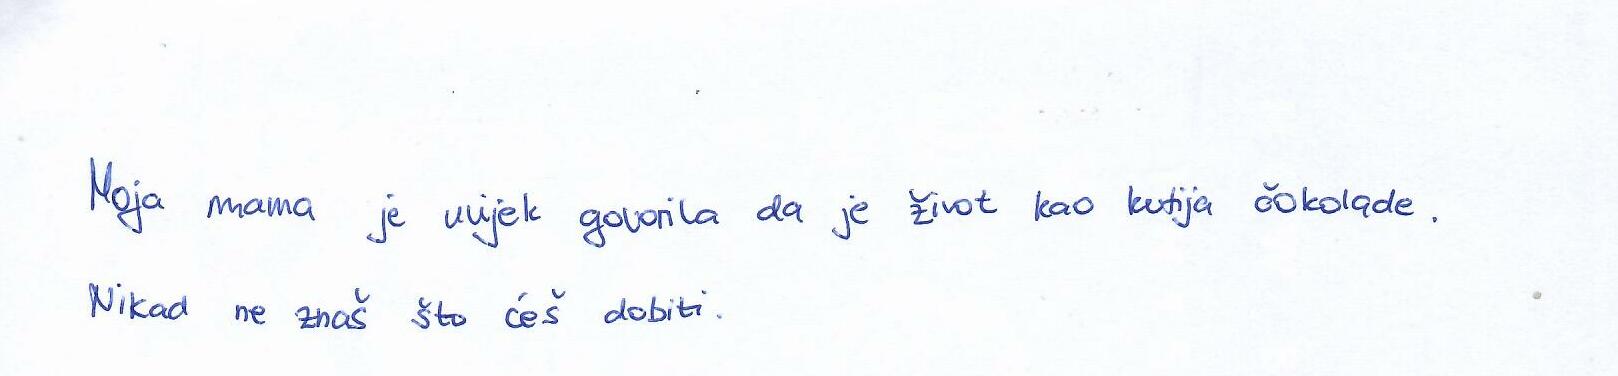 Moja mama je uvijek govorila da je život kao kutija čokolade.
Nikad ne znaš što ćeš dobiti.